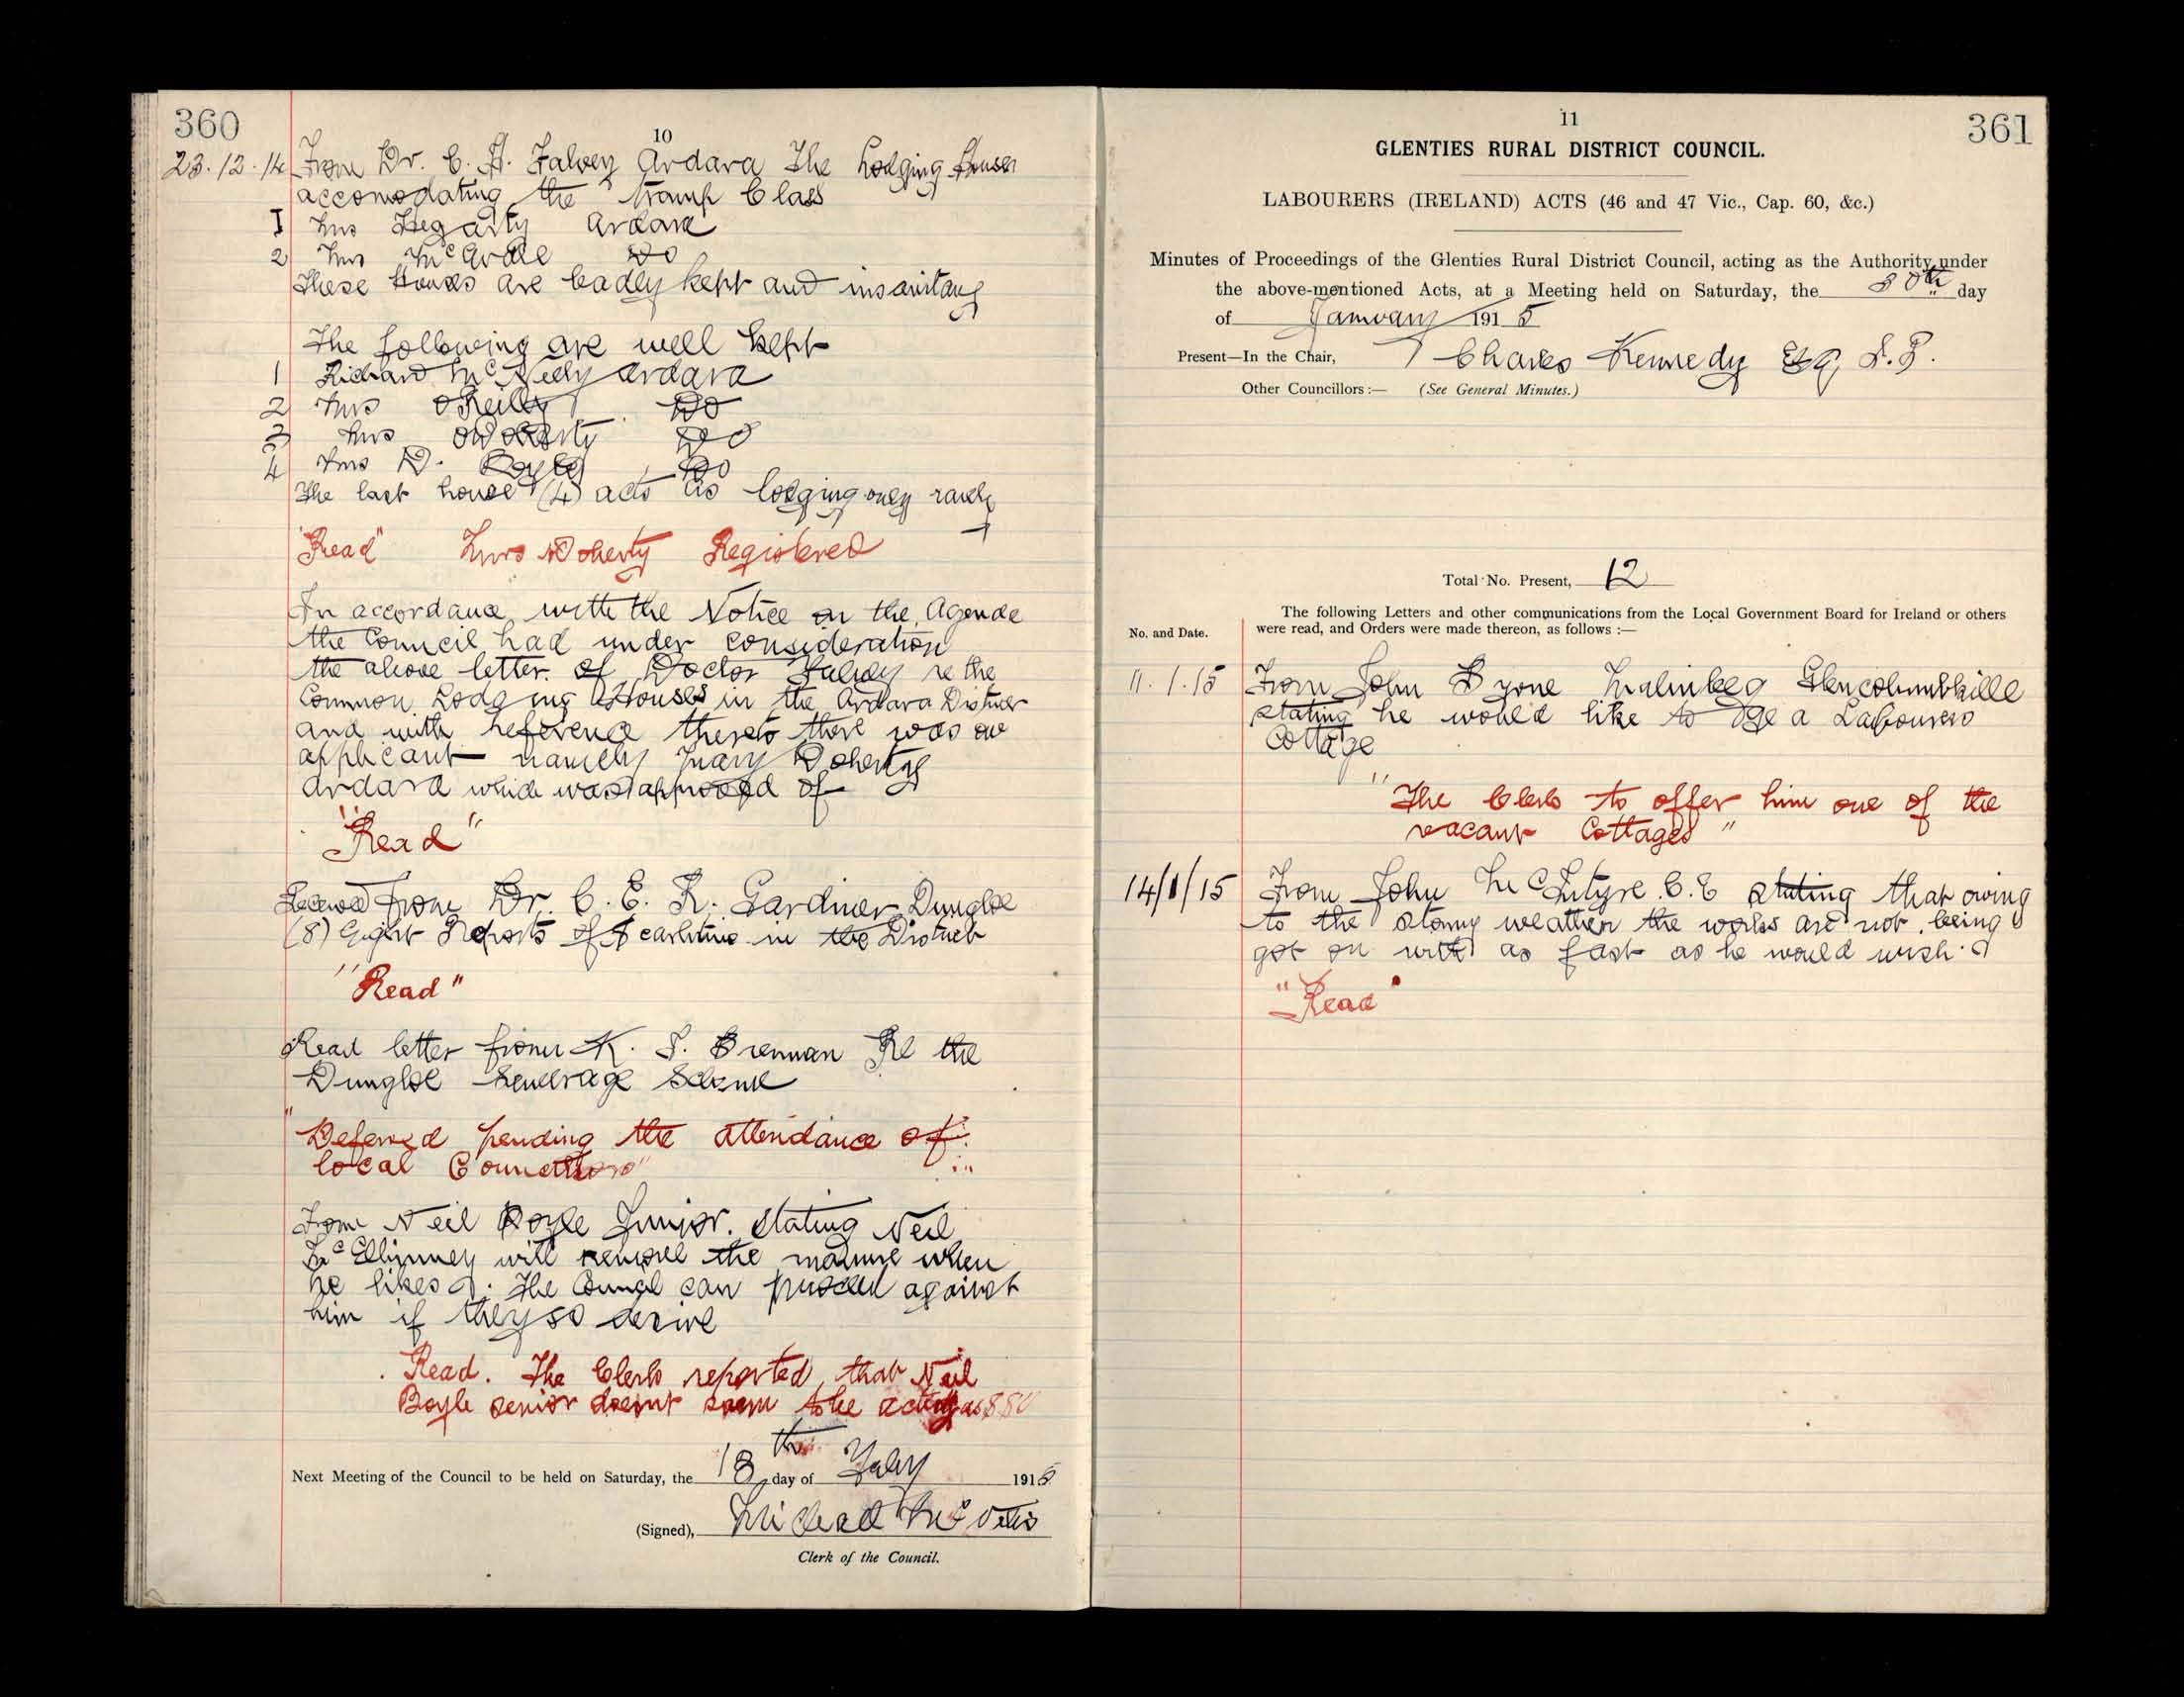 360
10
23.12.14 From Dr. C. A. Falvey Ardara The Lodging Houses
accomodating the tramp Class
1 Mrs Hegarty Ardara
2 Mrs McArdle Do
These Houses are badly kept and insanitary
The following are well kept
1 Richard McNelly Ardara
2 Mrs O'Reilly Do
3 Mrs O'Doherty Do
4 Mrs D. Boyle Do
The last house (4) acts as lodging only rarely
"Read" Mrs Doherty Registered
In accordance with the Notice on the Agenda
the Council had under consideration
the above letter of Doctor Falvey re the
Common Lodging Houses in the Ardara District
and with reference thereto there was one
applicant namely Mary Doherty
Ardara which was approved of
"Read"
Received from Dr. C. E. R. Gardiner Dungloe
(8) Eight Reports of Scarlatina in the District
"Read"
Read letter from K. S. Brennan Re the
Dungloe Sewerage Scheme
"Deferred pending the attendance of
local Councillors"
From Neil Boyle Junior. stating Neil
McElhinney will remove the manure when
he likes. The Council can proceed against
him if they so desire
Read. The Clerk reported that Neil
Boyle senior doesnt seem to be acting as SSO
Next Meeting of the Council to be held on Saturday, the 13th day of Feby 1915
(Signed), Michael Mc
Clerk of the Council.
11
361
GLENTIES RURAL DISTRICT COUNCIL.
LABOURERS (IRELAND) ACTS (46 and 47 Vic., Cap. 60, &c.)
Minutes of Proceedings of the Glenties Rural District Council, acting as the Authority under
the above-mentioned Acts, at a Meeting held on Saturday, the 30th day
of January 1915
Present—In the Chair, Charles Kennedy Esq J.P.
Other Councillors:— (See General Minutes.)
Total No. Present, 12
The following Letters and other communications from the Local Government Board for Ireland or others
No. and Date. were read, and Orders were made thereon, as follows :—
11.1.15 From John Byrne Malinbeg Glencolumbkille
stating he would like to get a Labourers
Cottage
"The Clerk to offer him one of the
vacant Cottages"
14/1/15 From John McIntyre C.E stating that owing
to the stormy weather the works are not being
got on with as fast as he would wish.
"Read"